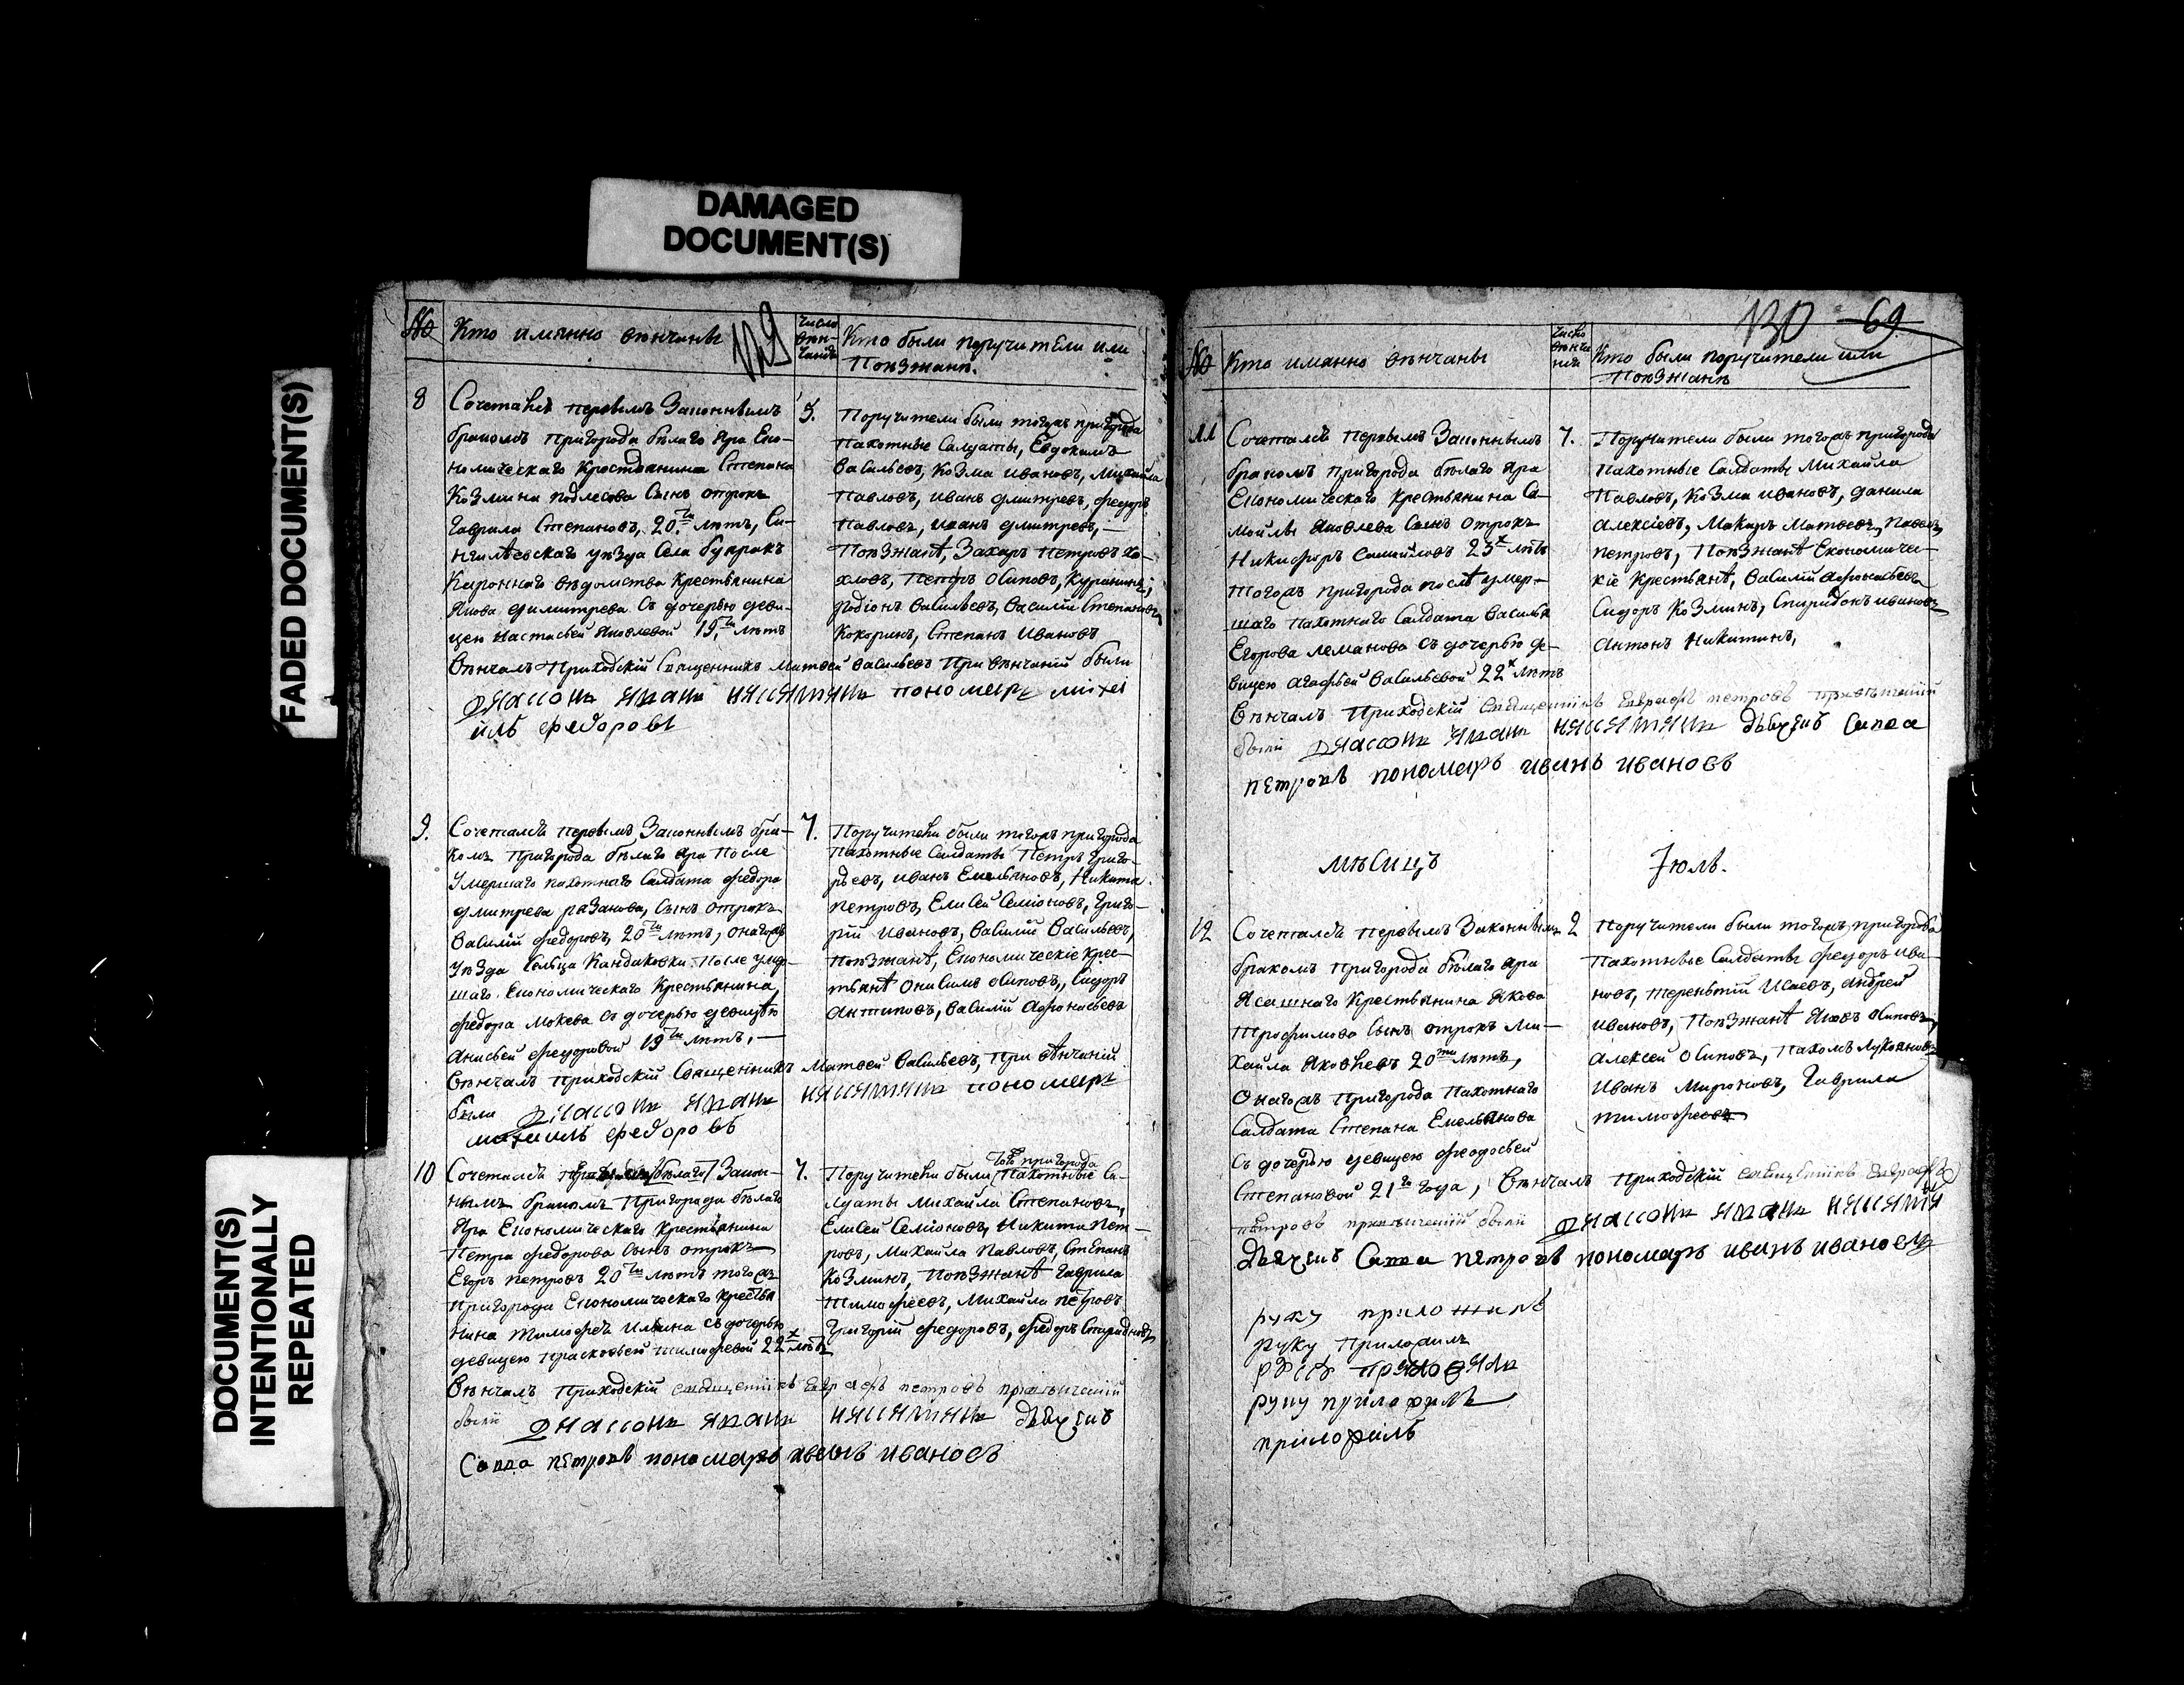 DAMAGED
DOCUMENT(S)
FADED DOCUMENT(S)
DOCUMENT(S)
INTENTIONALLY
REPEATED
№
Кто имянно вѣнчаны
129
число
вѣн-
чанiя
Кто были поручители или
Поѣзжанѣ.
8
Сочетался первымъ Законнымъ
бракомъ пригорода бѣлаго Яра Еко-
номическаго Крестьянина Степана
Козмина подлесова Сынъ отрокъ
Гаврила Степановъ, 20ти лѣтъ, Си-
нгилѣевскаго уѣзда Села
вѣдомства Крестьянина
Якова Димитрева Съ дочерью деви-
цею Настасьей Яковлевой 19ти лѣтъ
5.
Поручители были тогожъ пригорода
Пахотные Салдаты, Евдокимъ
Васильевъ, Козма Ивановъ, Михайла
Павловъ, Иванъ Дмитревъ, Федоръ
Павловъ, Иванъ Дмитревъ, —
Поѣзжанѣ, Захаръ Петровъ Хо-
хловъ, Петръ Осиповъ,
Родiонъ Васильевъ, Василiй Степановъ
Кокоринъ, Степанъ Ивановъ
Вѣнчалъ Приходскiй Священникъ Матвей Васильевъ При вѣнчанiй были
пономарь михаи
илъ федоровъ
9.
Сочетался первымъ Законнымъ бра-
комъ пригорода бѣлаго Яра После
Умершаго пахотнаго Салдата Федора
Дмитрева разанова, Сынъ отрокъ
Василiй Федоровъ, 20ти лѣтъ, онагожъ
Уѣзда Сельца Кандаковки После умер-
шаго Економическаго Крестьянина
Федора Мокева Съ дочерью девицею
Анисьей Федоровой 19ти лѣтъ, —
7.
Поручители были тогожъ пригорода
Пахотные Салдаты Петръ Григо-
рьевъ, Иванъ Емельяновъ, Никита
Петровъ, Елисей Семiоновъ, Григо-
рiй Ивановъ, Василiй Васильевъ,
Поѣзжанѣ, Економическiе Крес-
тьянѣ Онисимъ Осиповъ, Сидоръ
Антиповъ, Василiй Афонасьевъ
Вѣнчалъ приходскiй Священникъ Матвей Васильевъ, При вѣнчанiй
были
пономарь
михаилъ федоровъ
10
Сочетался Закон-
нымъ бракомъ Пригорода бѣлаго
Яра Економическаго Крестьянина
Петра Федорова Сынъ отрокъ
Егоръ Петровъ 20ти лѣтъ тогожъ
пригорода Економическаго Крестья
нина Тимофея Ильина Съ дочерью
девицею Прасковьею Тимофевой 22х лѣтъ
7.
Поручители были того пригорода Пахотные Са-
лдаты Михайла Степановъ,
Елисей Семiоновъ, Никита Пет-
ровъ, Михайла Павловъ, Степанъ
Козминъ, Поѣзжанѣ Гаврила
Тимофеевъ, Михайла Петровъ
Григорiй Федоровъ, Федоръ Спиридоновъ
Вѣнчалъ Приходскiй священнiкъ Евграфъ петровъ привѣнчанiй
были
дьячекъ
Савва петровъ пономарь иванъ ивановъ
№
Кто имянно вѣнчаны
число
вѣнча
нiя
130
69
Кто были поручители или
Поѣзжанѣ
11
Сочетался первымъ Законнымъ
бракомъ пригорода бѣлаго Яра
Економическаго Крестьянина Са-
мойлы Яковлева Сынъ отрокъ
Никифоръ Самойловъ 23х лѣтъ
тогожъ пригорода послѣ умер-
шаго пахотнаго Салдата Василья
Егорова леманова Съ дочерью де-
вицею Агафьей Васильевой 22х лѣтъ
7.
Поручители были тогожъ пригорода
Пахотные Салдаты Михайла
Павловъ, Козма Ивановъ, Данила
Алексiевъ, Макаръ Матвеевъ, Павелъ
Петровъ, Поѣзжанѣ Економиче-
кiе Крестьянѣ, Василiй Афонасьевъ
Сидоръ Козминъ, Спиридонъ Ивановъ
Антонъ Никитинъ,
Вѣнчалъ Приходскiй священнiкъ Евграфъ петровъ привѣнчанiй
были
дьячекъ Савва
петровъ пономарь иванъ ивановъ
мѣсицъ
Iюль.
12
Сочетался первымъ Законнымъ
бракомъ пригорода бѣлаго Яра
Ясашнаго Крестьянина Якова
Трофимова Сынъ отрокъ Ми-
хайла Яковлевъ 20ти лѣтъ,
Онагожъ пригорода Пахотнаго
Салдата Степана Емельянова
Съ дочерью девицею Феодосьей
Степановой 21го года,
2
Поручители были тогожъ пригорода
Пахотные Салдаты Федоръ Ива-
новъ, Терентiй Исаевъ, Андрей
Ивановъ, Поѣзжанѣ Яковъ Осиповъ,
Алексей Осиповъ, Пахомъ Лукояновъ
Иванъ Мироновъ, Гаврила
Тимофеевъ
Вѣнчалъ Приходскiй священнiкъ Евграфъ
петровъ привѣнчанiй были
Дьячекъ Савва петровъ пономарь иванъ ивановъ
руку приложилъ
руку приложилъ
руку приложилъ
приложилъ